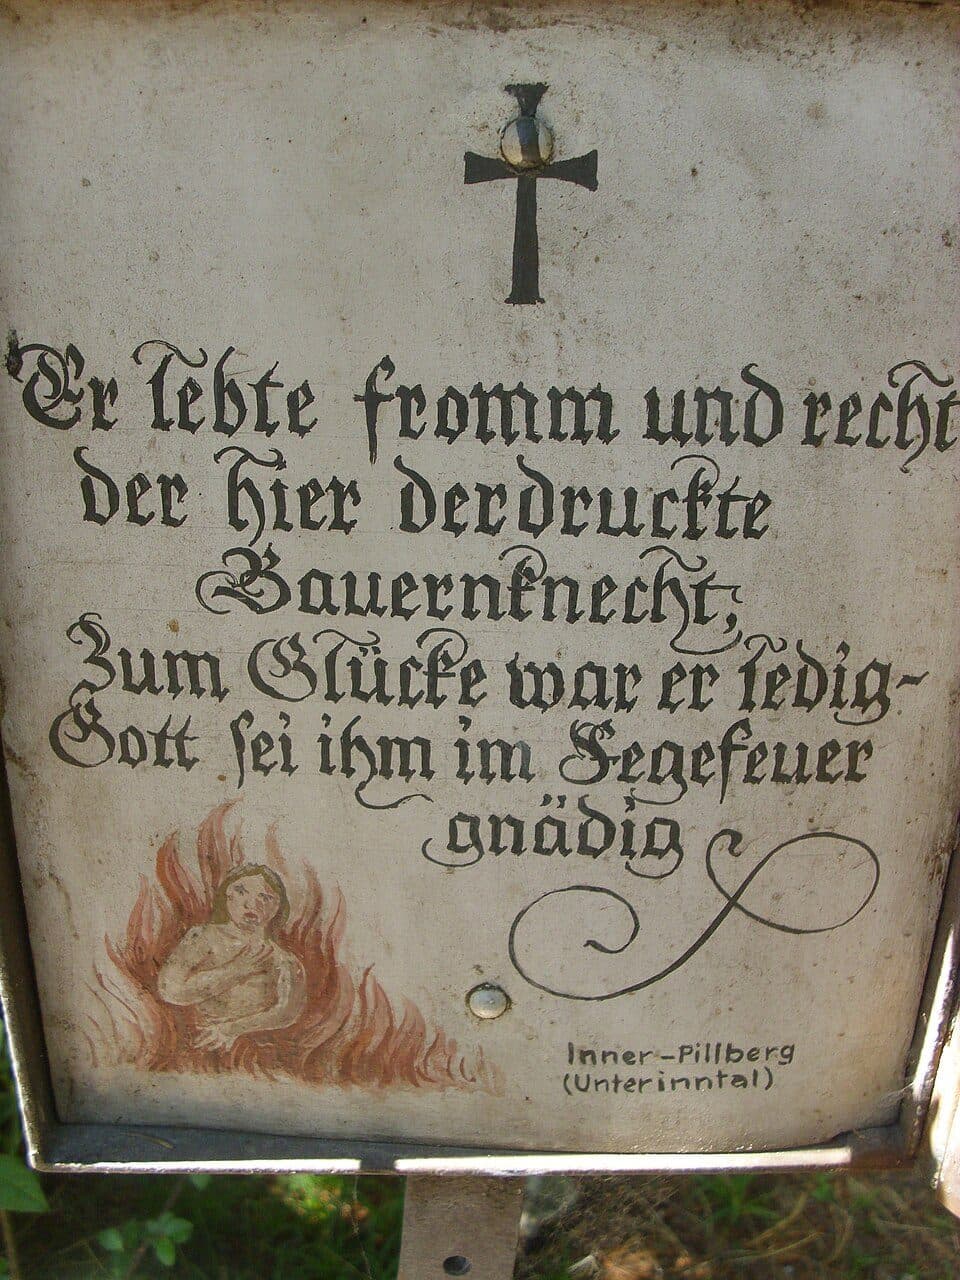 Er lebte fromm und recht
der hier derdruckte
Bauernknecht,
Zum Glücke war er ledig-
Gott sei ihm im Fegefeuer
gnädig
Inner-Pillberg
(Unterinntal)